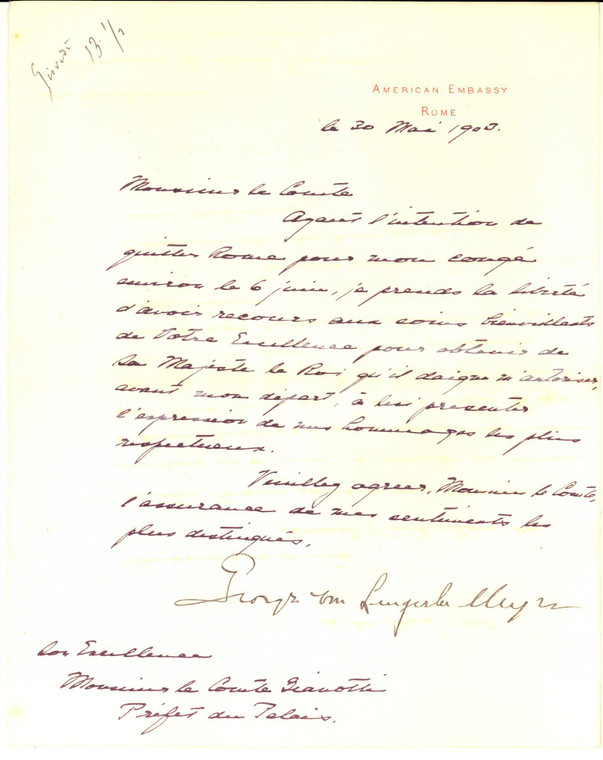 Giovedì
13 1/2
AMERICAN EMBASSY
ROME
le 30 Mai 1903.
Monsieur le Comte
Ayant l'intention de
quitter Rome pour mon congé
environ le 6 juin, je prends la liberté
d'avoir recours aux soins bienveillants
de Votre Excellence pour obtenir de
Sa Majesté le Roi qu'il daigne m'autoriser,
avant mon départ, à lui presenter
l'expression de mes hommages les plus
respectueux.
Veuillez agreer, Monsieur le Comte,
l'assurance de mes sentiments les
plus distingués.
George von Lengerke Meyer
Son Excellence
Monsieur le Comte Gianotti
Préfet du Palais.